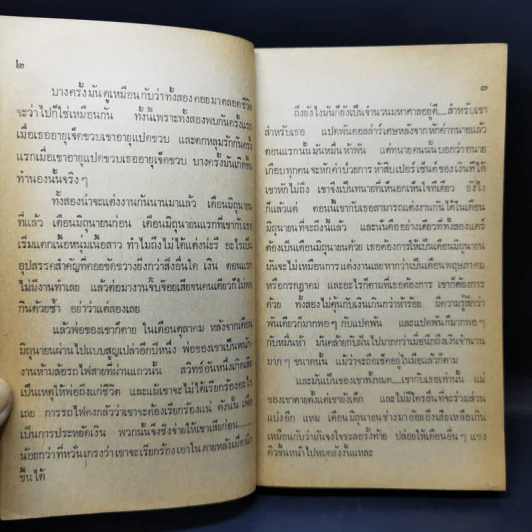 ๒
บางครั้งมันดูเหมือนกับว่าทั้งสองคอยมาตลอดชีวิต
จะว่าไปก็ใช่เหมือนกัน ทั้งนี้เพราะทั้งสองพบกันครั้งแรก
เมื่อเธออายุเจ็ดขวบเขาอายุแปดขวบ และตกหลุมรักกันครั้ง
แรกเมื่อเขาอายุแปดขวบเธออายุเจ็ดขวบ บางครั้งมันเกิดขึ้น
ทำนองนั้นจริงๆ
ทั้งสองน่าจะแต่งงานกันนานมาแล้ว เดือนมิถุนายน
ที่แล้ว เดือนมิถุนายนก่อน เดือนมิถุนายนแรกที่เขากับเธอ
เริ่มแตกเนื้อหนุ่มเนื้อสาว ทำไมถึงไม่ได้แต่งน่ะรึ อะไรเป็น
อุปสรรคสำคัญที่คอยขัดขวางยิ่งกว่าสิ่งอื่นใด เงิน ตอนแรก
ไม่มีงานทำเลย แล้วต่อมางานจิ๊บจ้อยเสียจนคนเดียวก็ไม่พอ
กินด้วยซ้ำ อย่าว่าแต่สองเลย
แล้วพ่อของเขาก็ตาย ในเดือนตุลาคม หลังจากเดือน
มิถุนายนผ่านไปแบบสูญเปล่าอีกปีหนึ่ง พ่อของเขาเป็นพนัก
งานห้ามล้อรถไฟสายที่ผ่านแถวนั้น สวิทช์อันหนึ่งเกิดเสีย
เป็นเหตุให้พ่อถึงแก่ชีวิต และแม้เขาจะไม่ได้เรียกร้องอะไร
เลย การรถไฟคงกลัวว่าเขาจะต้องเรียกร้องแน่ ดังนั้น เพื่อ
เป็นการประหยัดเงิน พวกนั้นจึงชิงจ่ายให้เขาเสียก่อน......
น้อยกว่าที่หวั่นเกรงว่าเขาจะเรียกร้องเอาในภายหลังเมื่อนึก
ขึ้นได้
๓
ถึงยังไงมันก็ยังเป็นจำนวนมหาศาลอยู่ดี....สำหรับเขา
สำหรับเธอ แปดพันดอลล่าร์เศษหลังจากหักค่าทนายแล้ว
ตอนแรกนั้นมันหมื่นห้าพัน แต่ทนายคนนั้นบอกว่าทนาย
เกือบทุกคนจะหักค่าป่วยการห้าสิบเปอร์เซ็นต์ของเงินที่ได้
เขาหักไม่ถึง เขาจึงเป็นทนายที่เห็นอกเห็นใจทีเดียว ยังไง
ก็แล้วแต่ ตอนนี้เขากับเธอสามารถแต่งงานกันได้ในเดือน
มิถุนายนที่จะถึงนี้แล้ว และนั่นคืออย่างเดียวที่ทั้งสองแคร์
ต้องเป็นเดือนมิถุนายนด้วย เธอต้องการให้เป็นเดือนมิถุนายน
มันจะไม่เหมือนการแต่งงานเลยหากว่าเป็นเดือนพฤษภาคม
หรือกรกฎาคม และอะไรก็ตามที่เธอต้องการ เขาก็ต้องการ
ด้วย ทั้งสองไม่คุ้นกับเงินเกินกว่าห้าร้อย มีความรู้สึกว่า
พันเดียวก็มากพอๆ กับแปดพัน และแปดพันก็มากพอๆ
กับหมื่นห้า มันคล้ายกับฝันไปมากกว่าเมื่อนึกถึงเงินจำนวน
มากๆ ขนาดนั้น แม้ว่าจะถือเช็คอยู่ในมือแล้วก็ตาม
และมันเป็นของเขาทั้งหมด....เขากับเธอเท่านั้น แม่
ของเขาตายตั้งแต่เขายังเด็ก และไม่มีใครอื่นที่จะร่วมส่วน
แบ่งอีก แหม เดือนมิถุนายนช่างมาอ้อยอิ่งเสียเหลือเกิน
เหมือนกับว่ามันจงใจชะลอรั้งท้าย ปล่อยให้เดือนอื่นๆ แซง
คิวขึ้นหน้าไปหมดยังงั้นแหละ